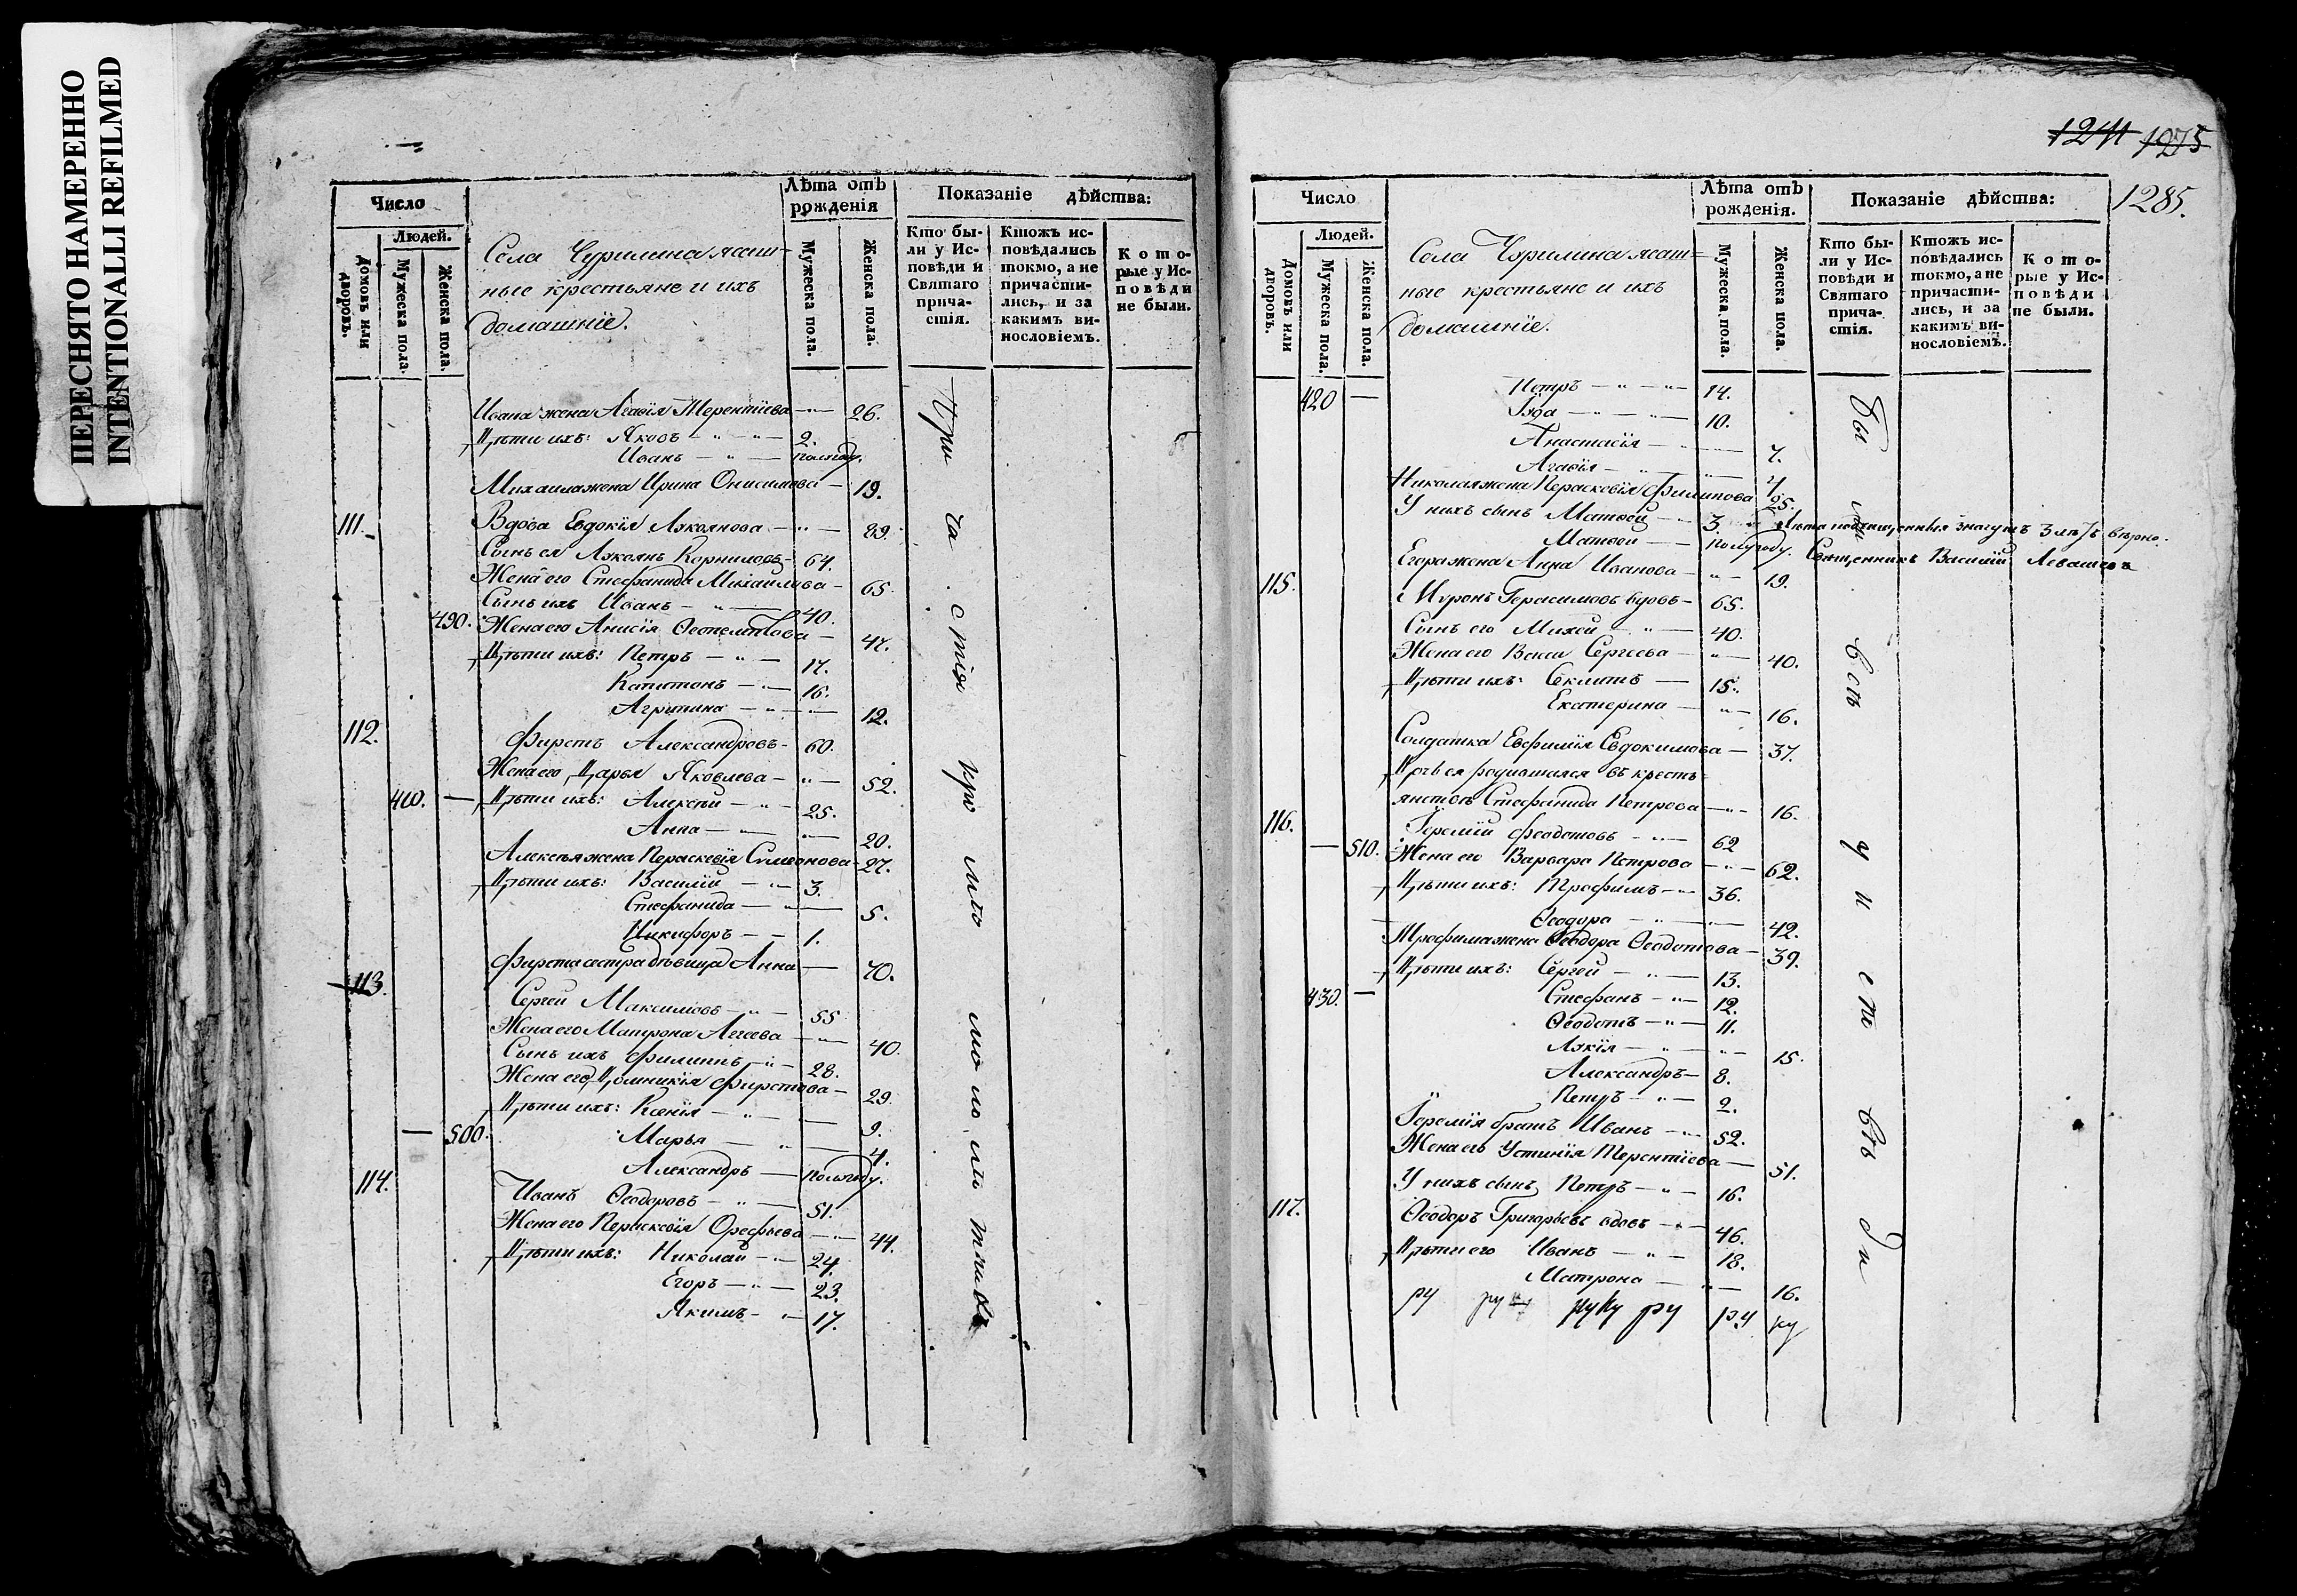 ПЕРЕСНЯТО НАМЕРЕННО
INTENTIONALLI REFILMED
Число
Людей.
Домовъ или дворовъ.
Мужеска пола.
Женска пола.
Села Чурилина ясаш-
ные крестьяне и ихъ
домашніе.
Лѣта отъ рожденія
Мужеска пола.
Женска пола.
Показаніе дѣйства:
Кто бы-
ли у Ис-
повѣди и
Святаго
прича-
стія.
Ктожъ ис-
повѣдались
токмо, а не
причасти-
лись, и за
какимъ ви-
нословіемъ.
Кото-
рые у Ис-
повѣди
не были.
Ивана жена Агафія Терентіева 26.
Дѣти ихъ: Яковъ 2.
Иванъ полгоду.
Михаила жена Ирина Онисимова 19.
111. Вдова Евдокія Лукоянова 89.
Сынъ ея Лукоянъ Корниловъ 64.
Жена его Стефанида Михаилова 65.
Сынъ ихъ Иванъ 40.
490. Жена его Анисія 47.
Дѣти ихъ: Петръ 17.
Капитонъ 16.
Агрипина 12.
112. Фирстъ Александровъ 60.
Жена его Дарья Яковлева 52.
410. — Дѣти ихъ: Алексѣй 25.
Анна 20.
Алексѣя жена Параскевія Симеонова 27.
Дѣти ихъ: Василій 3.
Стефанида 5.
Никифоръ 1.
Фирста сестра дѣвица Анна 70.
113. Сергей Максимовъ 55
Жена его Матрона Агеева 40.
Сынъ ихъ Филиппъ 28.
Жена его Домникія Фирстова 29.
Дѣти ихъ: Ксенія 9.
— 500. Марья 4.
Александръ полгоду.
114. Иванъ Ѳеодоровъ 51.
Жена его Параскевія Орефьева 44.
Дѣти ихъ: Николай 24.
Егоръ 23.
Якимъ 17.
При ча стіе
1241 1275
1285.
Число
Людей.
Домовъ или дворовъ.
Мужеска пола.
Женска пола.
Села Чурилина ясаш=
ные крестьяне и ихъ
домашніе.
Лѣта отъ рожденія.
Мужеска пола.
Женска пола.
Показаніе дѣйства:
Кто бы-
ли у Ис-
повѣди и
Святаго
прича-
стія.
Ктожъ ис-
повѣдались
токмо, а не
причасти-
лись, и за
какимъ ви-
нословіемъ.
Кото-
рые у Ис-
повѣди
не были.
420 — Петръ 14.
Іуда 10.
Анастасія 7.
Агафія 4
Николая жена Параскевія Филипова 25.
У нихъ сынъ Матвей 3. Лѣта подчищенныя значутъ 3 лѣтъ вѣрно.
Матвеи полугоду. Священникъ Василій Левашевъ
Егора жена Анна Иванова 19.
115. Миронъ Герасимовъ вдовъ 65.
Сынъ его Михей 40.
Жена его Васса Сергеева 40.
Дѣти ихъ: 15.
Екатерина 16.
Солдатка Евфимія Евдокимова 37.
Дочь ея родившаяся въ кресть-
янствѣ Стефанида Петрова 16.
116. Іеремій Феодотовъ 62
— 510. Жена его Варвара Петрова 62.
Дѣти ихъ: Трофимъ 36.
Ѳеодора 42.
Трофима жена Ѳеодора Ѳеодотова 39.
Дѣти ихъ: Сергей 13.
430. — Стефанъ 12.
Ѳеодотъ 11.
Лукія 15.
Александръ 8.
Петръ 2.
Іеремія братъ Иванъ 52.
Жена его Устинія Терентіева 51.
У нихъ сынъ Петръ 16.
117. Ѳеодоръ Григорьевъ вдовъ 46.
Дѣти его Иванъ 18.
Матрона 16.
ру ру руку ру ру ру